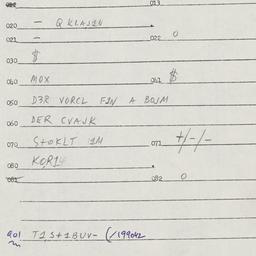 013
020 — Q KLASIN
021 — 022 0
030 $
040 MOX 041 $
050 D3R VORCL FIN A BOJM
060 DER CVAJK
070 S+OKLT IM 071 +/-/-
080 KOR14
081 082 0
901 T1S+1BUV- (/199042